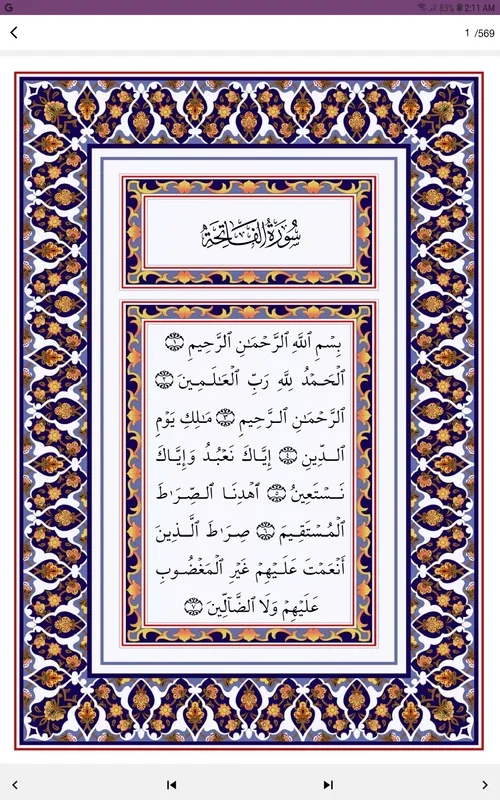 G 83% 2:11 AM
1 /569
سُورَةُ الفَاتِحَةُ
بِسْمِ ٱللَّهِ ٱلرَّحْمَٰنِ ٱلرَّحِيمِ ١
ٱلْحَمْدُ لِلَّهِ رَبِّ ٱلْعَٰلَمِينَ ٢
ٱلرَّحْمَٰنِ ٱلرَّحِيمِ ٣ مَٰلِكِ يَوْمِ
ٱلدِّينِ ٤ إِيَّاكَ نَعْبُدُ وَإِيَّاكَ
نَسْتَعِينُ ٥ ٱهْدِنَا ٱلصِّرَٰطَ
ٱلْمُسْتَقِيمَ ٦ صِرَٰطَ ٱلَّذِينَ
أَنْعَمْتَ عَلَيْهِمْ غَيْرِ ٱلْمَغْضُوبِ
عَلَيْهِمْ وَلَا ٱلضَّآلِّينَ ٧